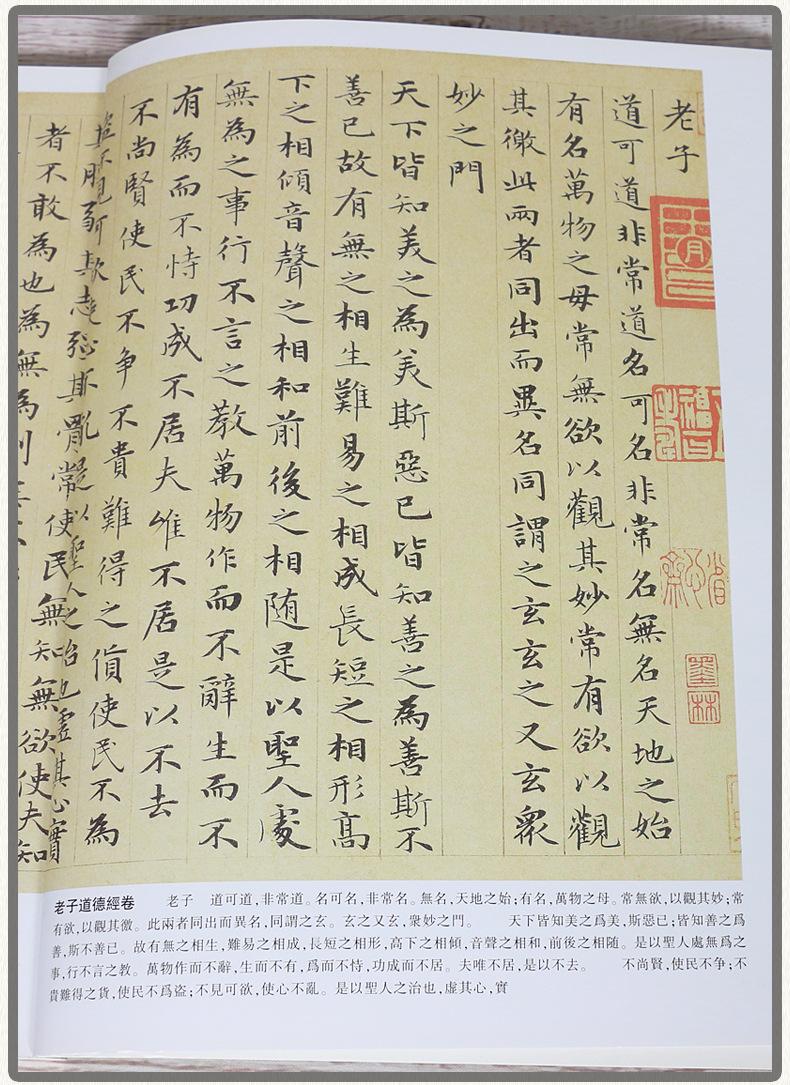 老子
道可道非常道名可名非常名無名天地之始
有名萬物之母常無欲以觀其妙常有欲以觀
其徼此兩者同出而異名同謂之玄玄之又玄衆
妙之門
天下皆知美之為美斯惡已皆知善之為善斯不
善已故有無之相生難易之相成長短之相形高
下之相傾音聲之相和前後之相随是以聖人處
無為之事行不言之教萬物作而不辭生而不
有為而不恃功成不居夫唯不居是以不去
不尚賢使民不争不貴難得之貨使民不為
以聖人之治也虛其心實
常使民無知無欲使夫知
者不敢為也為無為則
老子道德經卷 老子 道可道,非常道。名可名,非常名。無名,天地之始;有名,萬物之母。常無欲,以觀其妙;常
有欲,以觀其徼。此兩者同出而異名,同謂之玄。玄之又玄,衆妙之門。 天下皆知美之爲美,斯惡已;皆知善之爲
善,斯不善已。故有無之相生,難易之相成,長短之相形,高下之相傾,音聲之相和,前後之相随。是以聖人處無爲之
事,行不言之教。萬物作而不辭,生而不有,爲而不恃,功成而不居。夫唯不居,是以不去。 不尚賢,使民不争;不
貴難得之貨,使民不爲盗;不見可欲,使心不亂。是以聖人之治也,虛其心,實